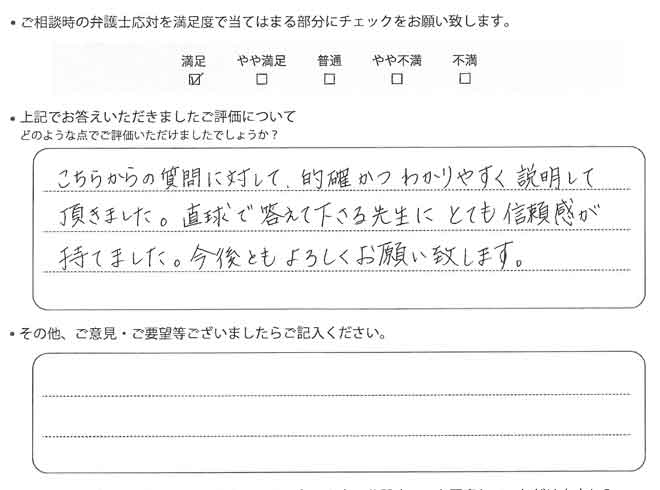 • ご相談時の弁護士応対を満足度で当てはまる部分にチェックをお願い致します。
満足 やや満足 普通 やや不満 不満
☑ □ □ □ □
• 上記でお答えいただきましたご評価について
どのような点でご評価いただけましたでしょうか？
こちらからの質問に対して、的確かつわかりやすく説明して
頂きました。直球で答えて下さる先生にとても信頼感が
持てました。今後ともよろしくお願い致します。
• その他、ご意見・ご要望等ございましたらご記入ください。